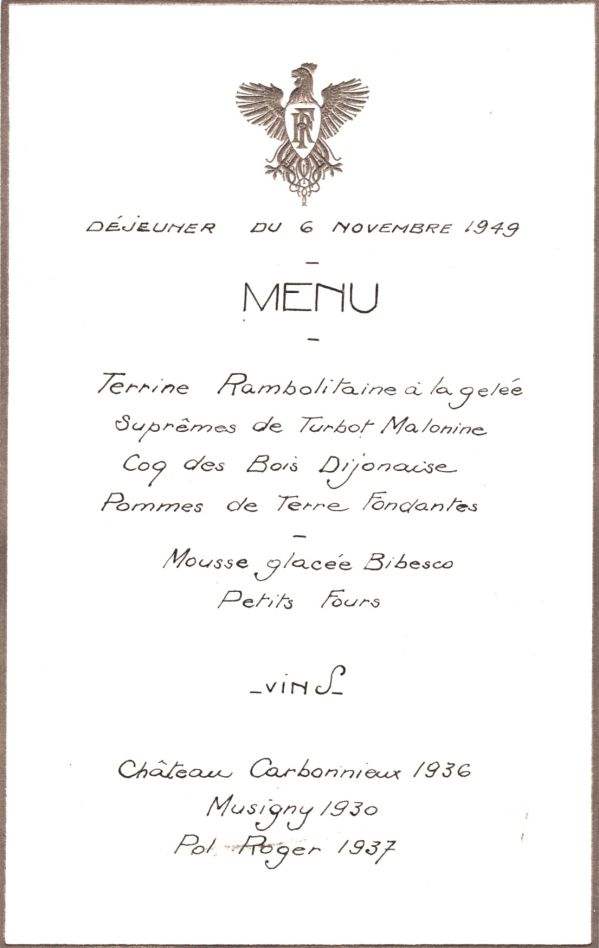 RF
DÉJEUNER DU 6 NOVEMBRE 1949
MENU
Terrine Rambolitaine à la gelée
Suprêmes de Turbot Malonine
Coq des Bois Dijonaise
Pommes de Terre Fondantes
Mousse glacée Bibesco
Petits Fours
-VINS-
Château Carbonnieux 1936
Musigny 1930
Pol Roger 1937